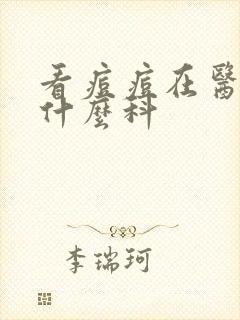 看痘痘在醫
什麼科
李瑞珂